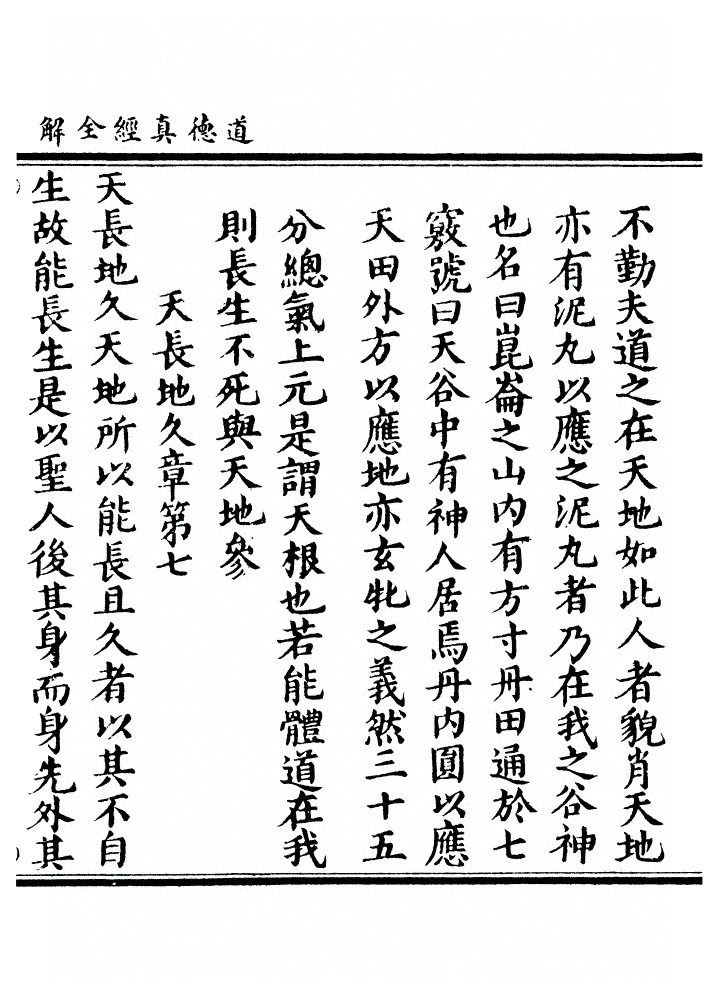 道德真經全解
不勤夫道之在天地如此人者貌肖天地
亦有泥丸以應之泥丸者乃在我之谷神
也名曰崑崙之山內有方寸丹田通於七
竅號曰天谷中有神人居焉丹內圓以應
天田外方以應地亦玄牝之義然三十五
分總氣上元是謂天根也若能體道在我
則長生不死與天地參
天長地久章第七
天長地久天地所以能長且久者以其不自
生故能長生是以聖人後其身而身先外其